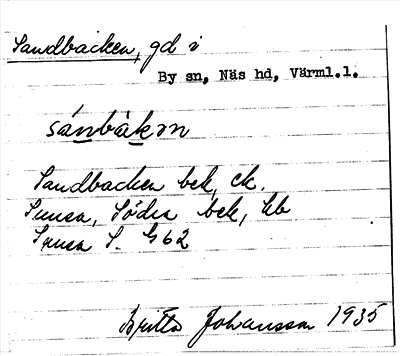 Sandbacken, gd i
By sn, Näs hd, Värml.l.
sánbàkɷn
Sandbacken bek, ck.
Smnsa, Södra bek, kb
Smnsa S. G62
Britta Johansson 1935